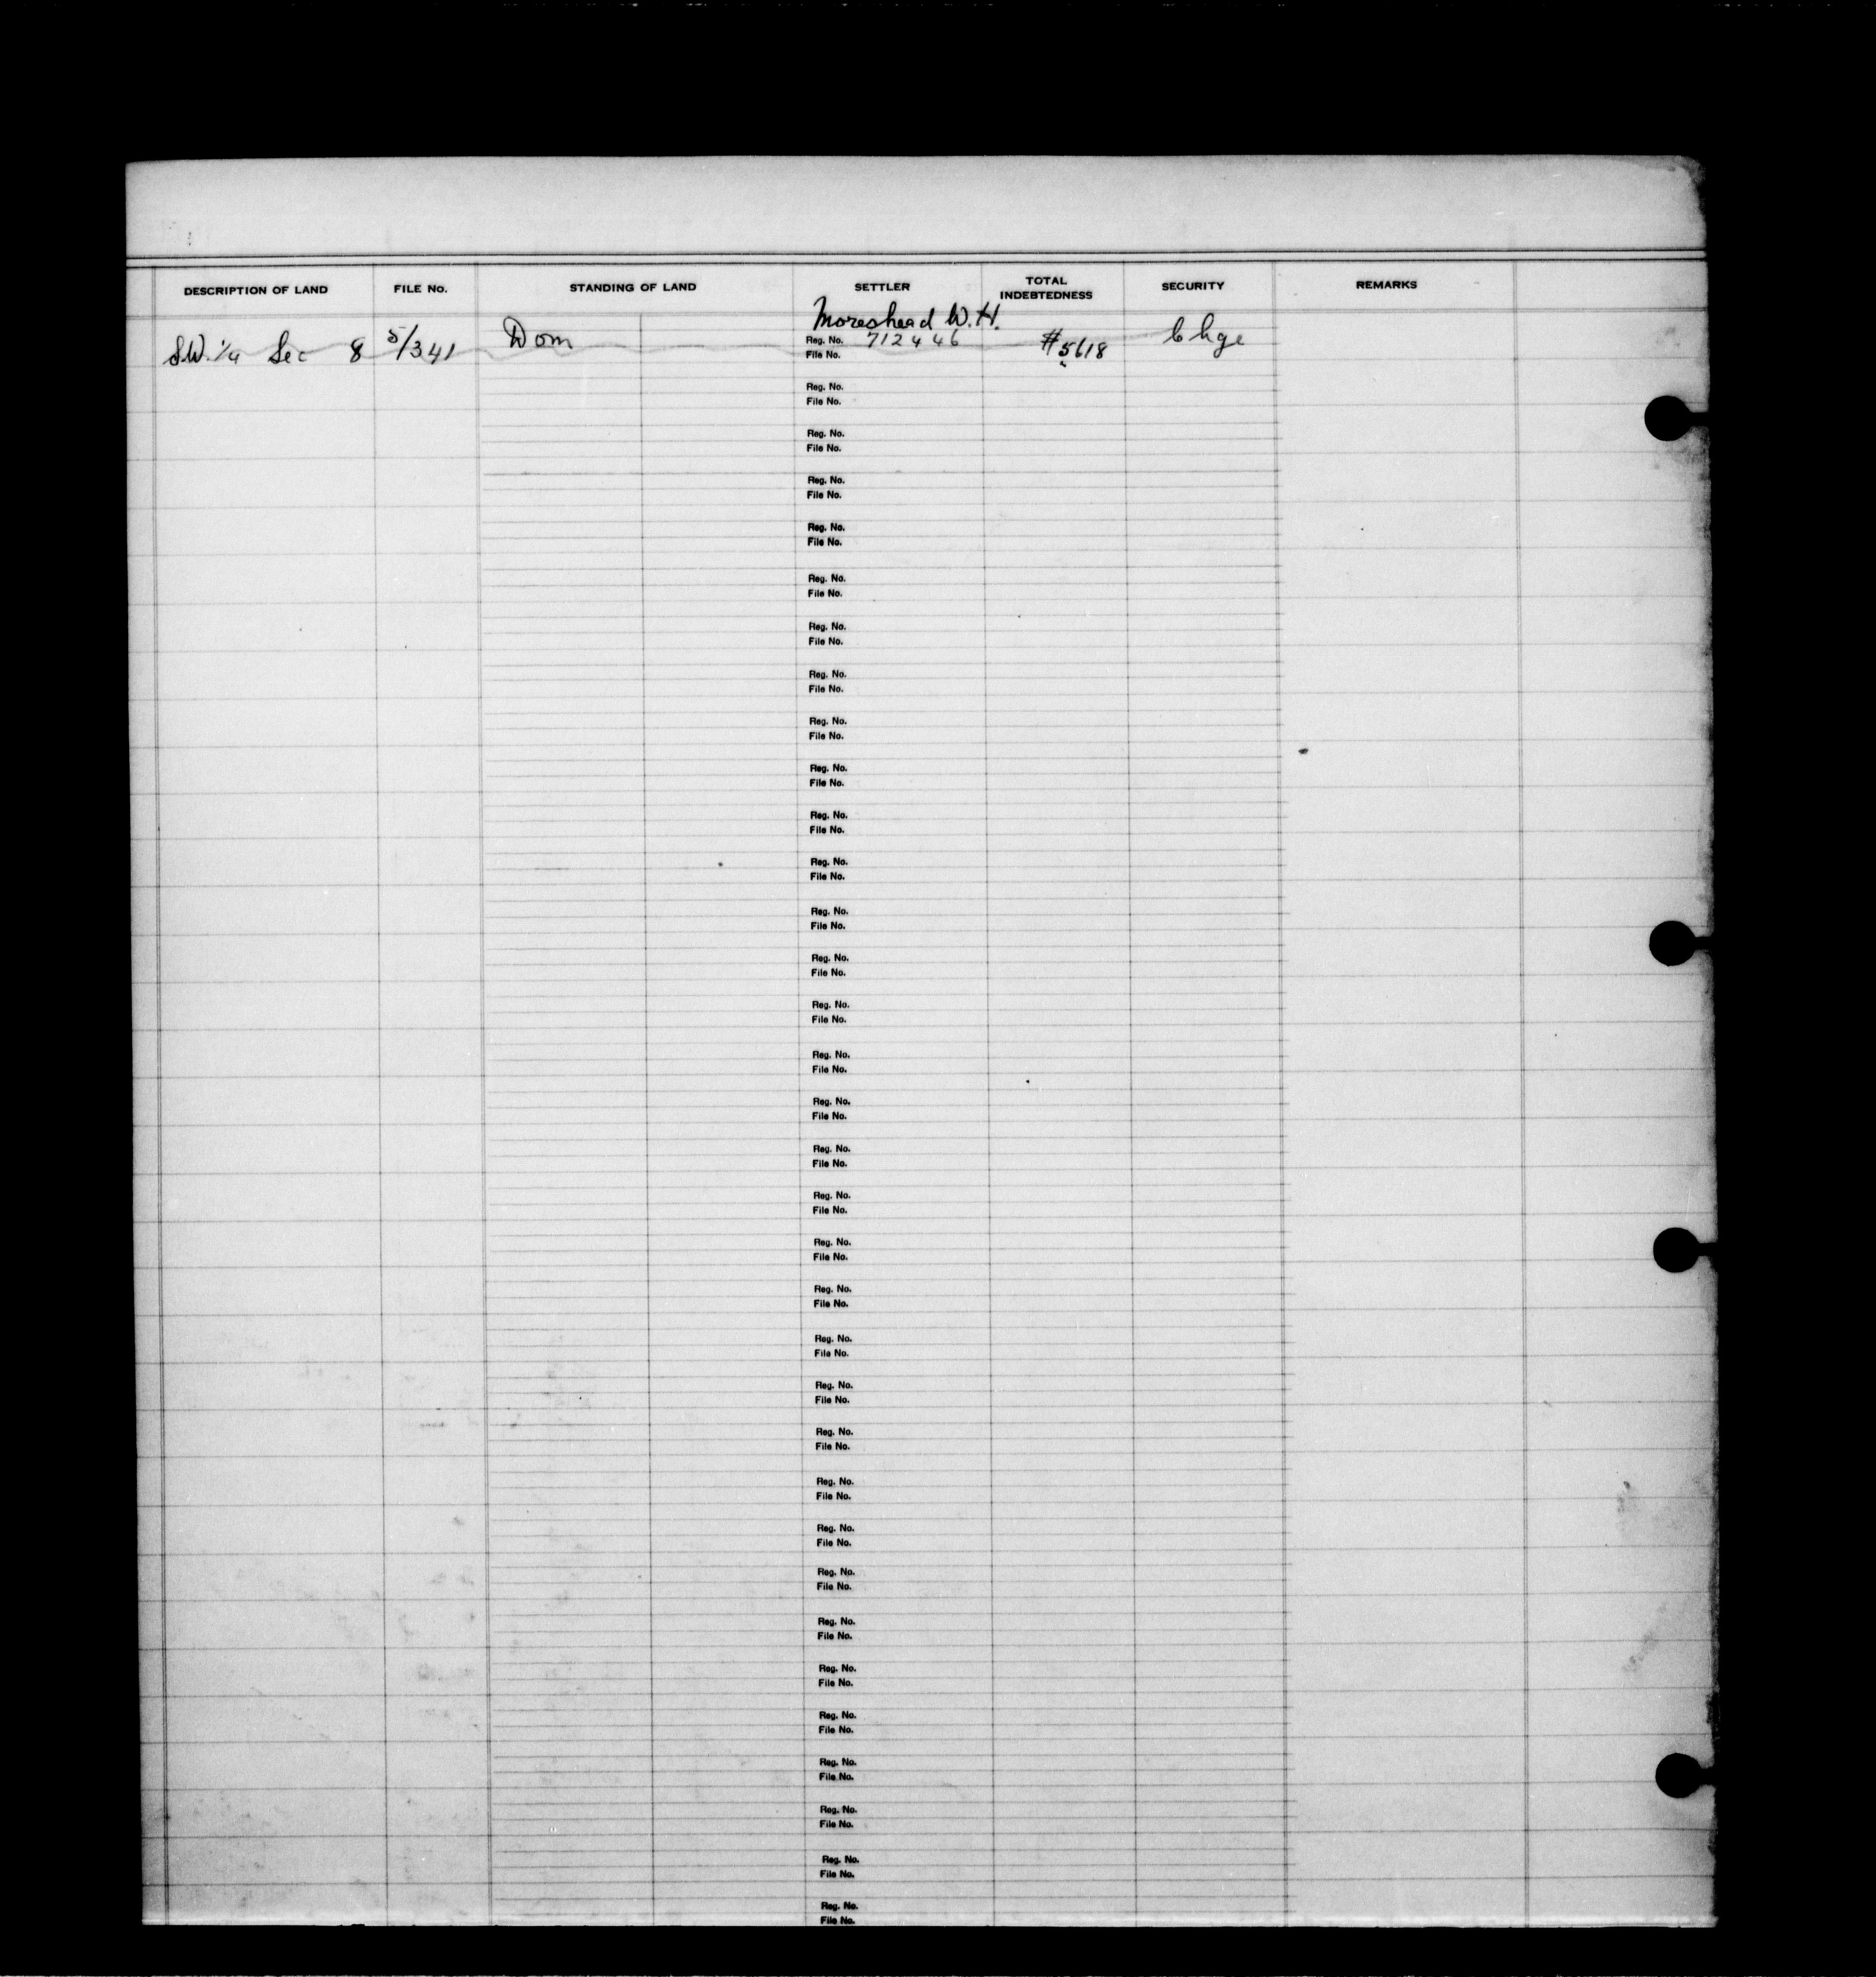 DESCRIPTION OF LAND FILE No. STANDING OF LAND SETTLER TOTAL INDEBTEDNESS SECURITY REMARKS
Moreshead W.H.
S.W. 1/4 Sec 8 5/341 Dom Reg. No. 712446 #5618 Chge
File No.
Reg. No.
File No.
Reg. No.
File No.
Reg. No.
File No.
Reg. No.
File No.
Reg. No.
File No.
Reg. No.
File No.
Reg. No.
File No.
Reg. No.
File No.
Reg. No.
File No.
Reg. No.
File No.
Reg. No.
File No.
Reg. No.
File No.
Reg. No.
File No.
Reg. No.
File No.
Reg. No.
File No.
Reg. No.
File No.
Reg. No.
File No.
Reg. No.
File No.
Reg. No.
File No.
Reg. No.
File No.
Reg. No.
File No.
Reg. No.
File No.
Reg. No.
File No.
Reg. No.
File No.
Reg. No.
File No.
Reg. No.
File No.
Reg. No.
File No.
Reg. No.
File No.
Reg. No.
File No.
Reg. No.
File No.
Reg. No.
File No.
Reg. No.
File No.
Reg. No.
File No.